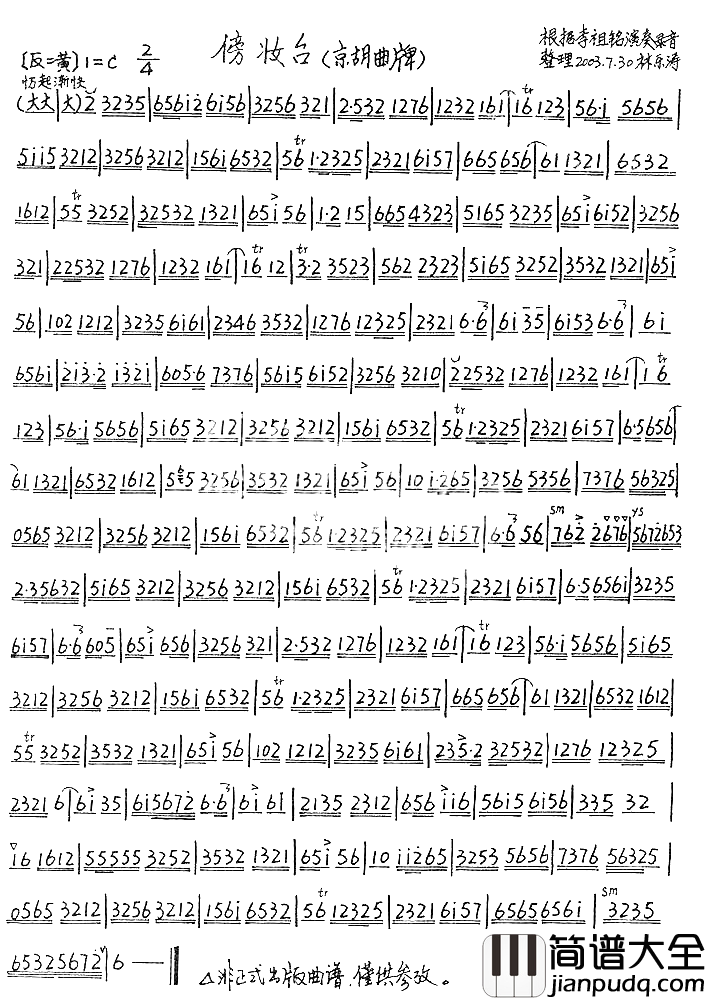 [反二黄] 1=C 2/4 傍妆台(京胡曲牌) 根据李祖铭演奏录音
整理2003.7.30 林东涛
(大大|大)2 3235|656i2 6156|3256 321|2·532 1276|1232 161|16 123|56·i 5656|
5ii5 3212|3256 3212|156i 6532|56 1·2325|2321 6157|665 656|61 1321|6532
1612|55 3252|32532 1321|65i 56|1·2 15|665 4323|5165 3235|65i 6152|3256
321|22532 1276|1232 161|16 12|3·2 3523|562 2323|5165 3252|3532 1321|65i
56|102 1212|3235 6161|2346 3532|1276 12325|2321 6·6|6i 35|6153 6·6|6i
656i|2i3·2 i32i|605·6 7376|5615 6152|3256 3210|22532 1276|1232 161|16
123|56·i 5656|5i65 3212|3256 3212|156i 6532|56 1·2325|2321 6157|6·5656
61 1321|6532 1612|5 5 3256|3532 1321|65i 56|10 i·265|3256 5356|7376 56325|
0565 3212|3256 3212|156i 6532|56 1·2325|2321 6157|6·6 56|762 2676|5672653
2·35632|5165 3212|3256 3212|156i 6532|56 1·2325|2321 6157|6·5656i|3235
6157|6·6 605|65i 656|3256 321|2·532 1276|1232 161|16 123|56·i 5656|5i65
3212|3256 3212|156i 6532|56 1·2325|2321 6157|665 656|61 1321|6532 1612|
55 3252|3532 1321|65i 56|102 1212|3235 6161|235·2 32532|1276 12325|
2321 6|6i 35|615672 6·6|6i 6i|2135 2312|656 ii6|5615 6156|335 32|
i6 1612|55555 3252|3532 1321|65i 56|10 ii265|3253 5656|7376 56325|
0565 3212|3256 3212|156i 6532|56 12325|2321 6157|6565656i|3235
65325672|6 — ‖ △非正式出版曲谱,仅供参考。
简谱大全
jianpudq.com